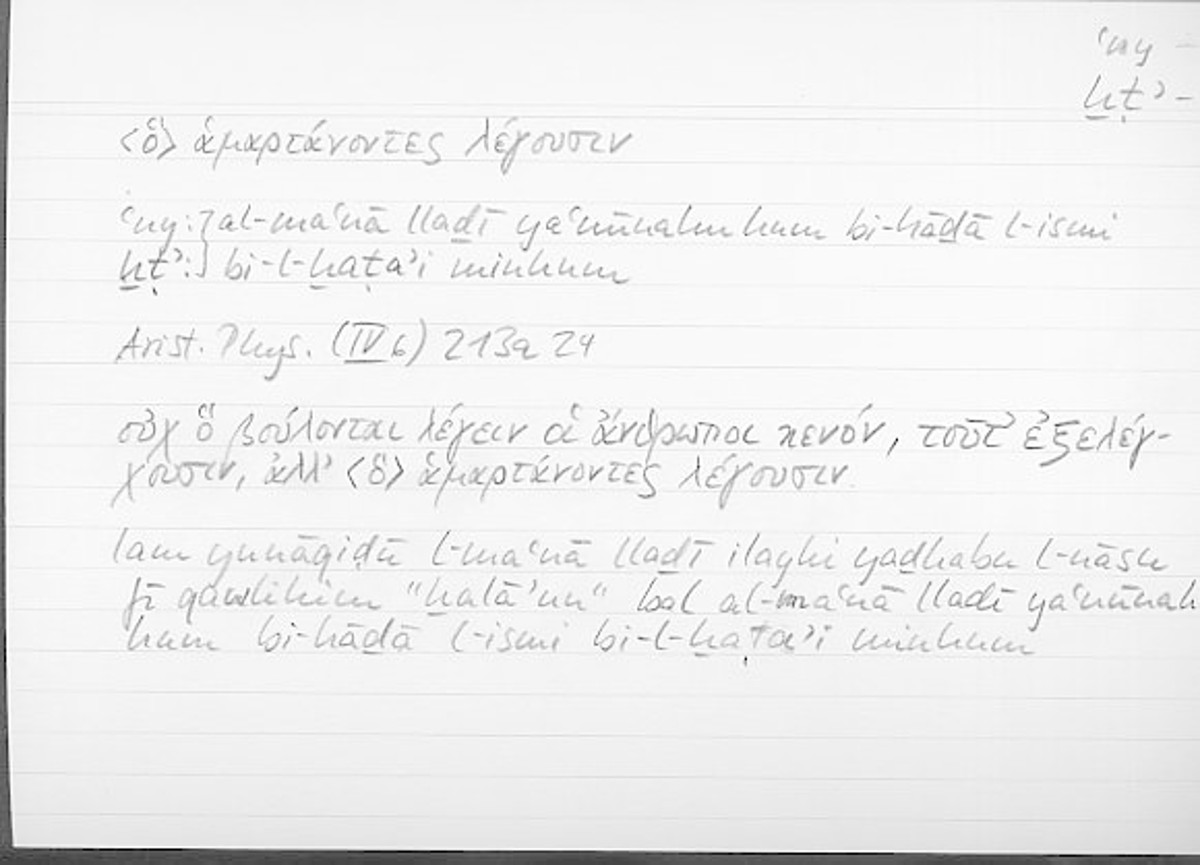 ʿny –
ḫṭʾ –
<ὃ> ἁμαρτάνοντες λέγουσιν
ʿny:] al-maʿnā llaḏī yaʿnūnahu hum bi-hāḏā l-ismi
ḫṭʾ:] bi-l-ḫaṭaʾi minhum
Arist. Phys. (IV 6) 213a 24
οὐχ ὃ βούλονται λέγειν οἱ ἄνθρωποι κενόν, τοῦτ’ ἐξελέγ-
χουσιν, ἀλλ’ <ὃ> ἁμαρτάνοντες λέγουσιν.
lam yunāqiḍū l-maʿnā llaḏī ilayhi yaḏhabu l-nāsu
fī qawlihim "ḫalāʾun" bal al-maʿnā llaḏī yaʿnūnah
hum bi-hāḏā l-ismi bi-l-ḫaṭaʾi minhum